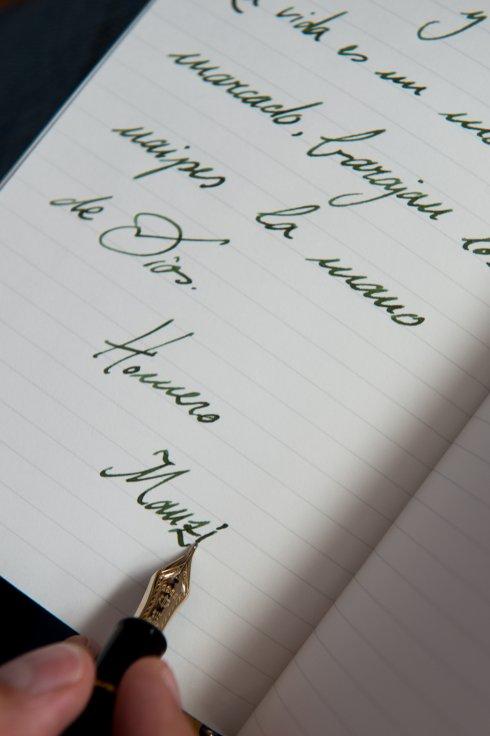 y
vida es un
marcado, barajan
naipes la mano
de Dios.
Homero
Manzi